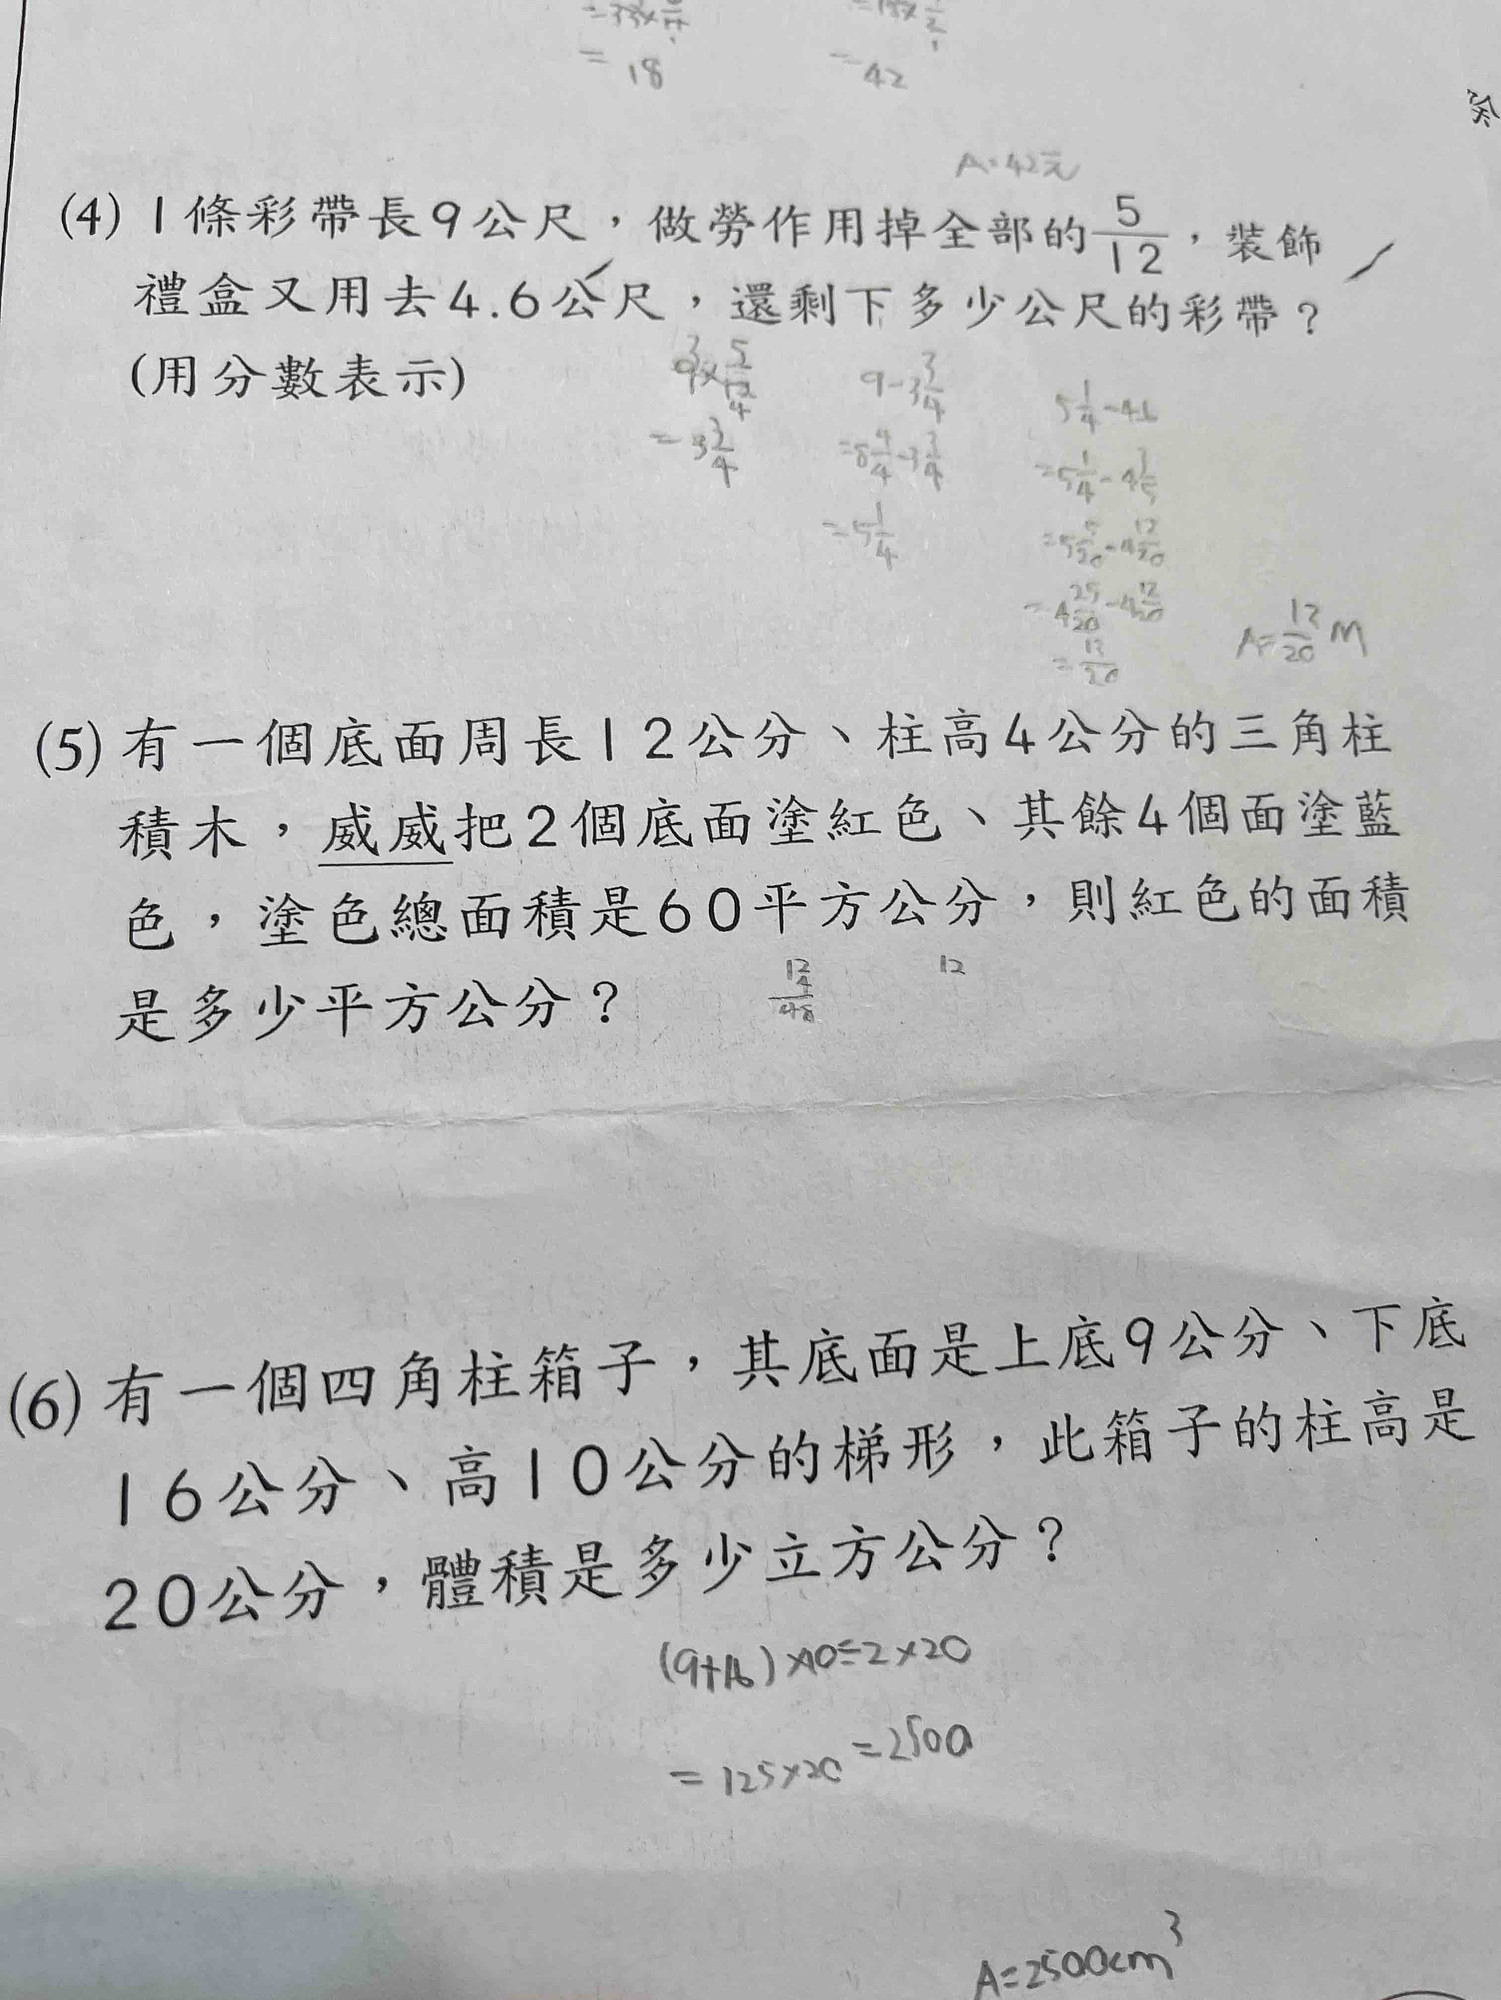 = 18
= 42
A=42元
(4) 1條彩帶長9公尺，做勞作用掉全部的5/12，裝飾
禮盒又用去4.6公尺，還剩下多少公尺的彩帶？
(用分數表示)
9×5/12 3 4
=3 3/4
9-3 3/4
=8 4/4-3 3/4
=5 1/4
5 1/4-4.6
=5 1/4-4 3/5
=5 5/20-4 12/20
=4 25/20-4 12/20
=13/20
A=13/20 M
(5) 有一個底面周長12公分、柱高4公分的三角柱
積木，威威把2個底面塗紅色、其餘4個面塗藍
色，塗色總面積是60平方公分，則紅色的面積
是多少平方公分？
12
4
48
12
(6) 有一個四角柱箱子，其底面是上底9公分、下底
16公分、高10公分的梯形，此箱子的柱高是
20公分，體積是多少立方公分？
(9+16)×10÷2×20
=125×20=2500
A=2500cm³